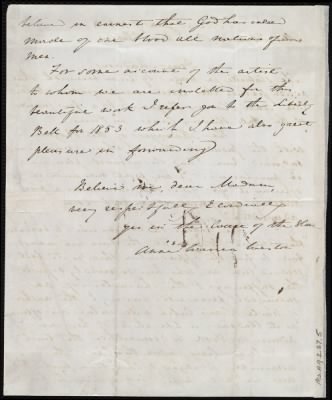 believe in earnest that God has indeed
made of one blood all nations of
men.
For some account of the artist
to whom we are indebted for this
beautiful work I refer you to the Liberty
Bell for 1853 which I have also great
pleasure in forwarding
Believe me, dear Madam,
very respectfully & cordially
yrs in the cause of the Slave
Anne Warren Weston
Ms.A.9.2.27.5